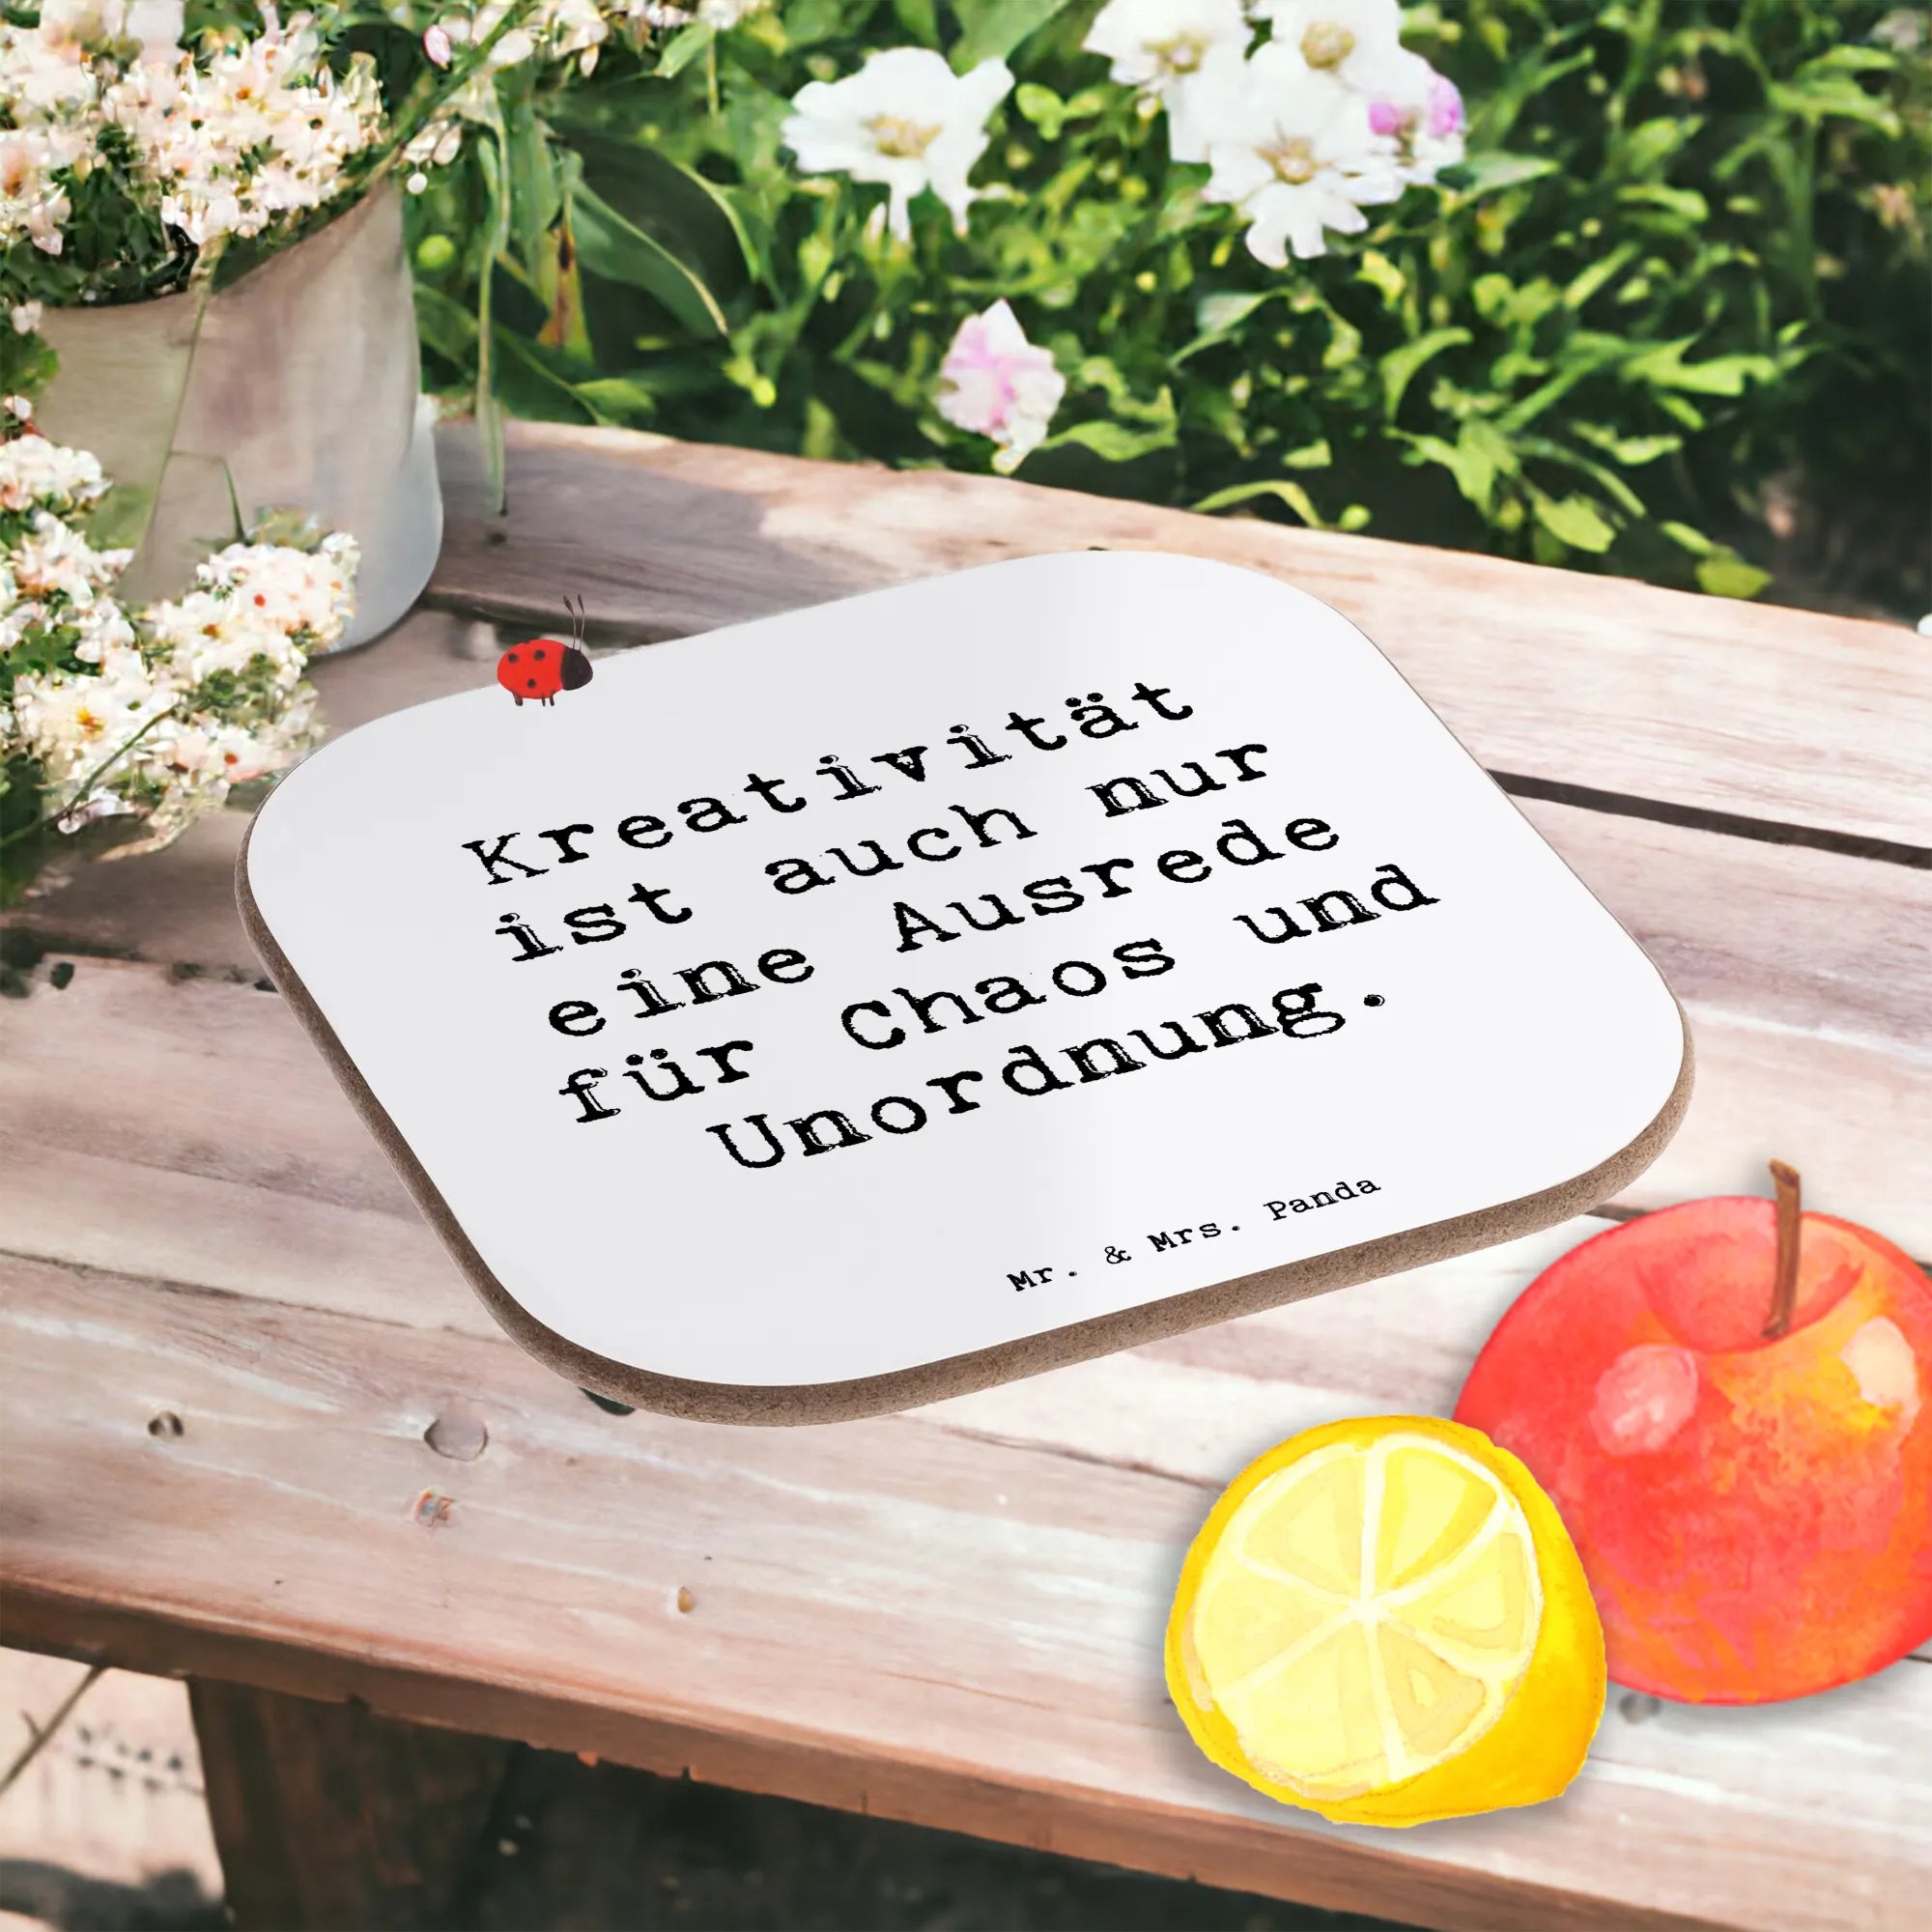 Kreativität
ist auch nur
eine Ausrede
für Chaos und
Unordnung.
Mr. & Mrs. Panda